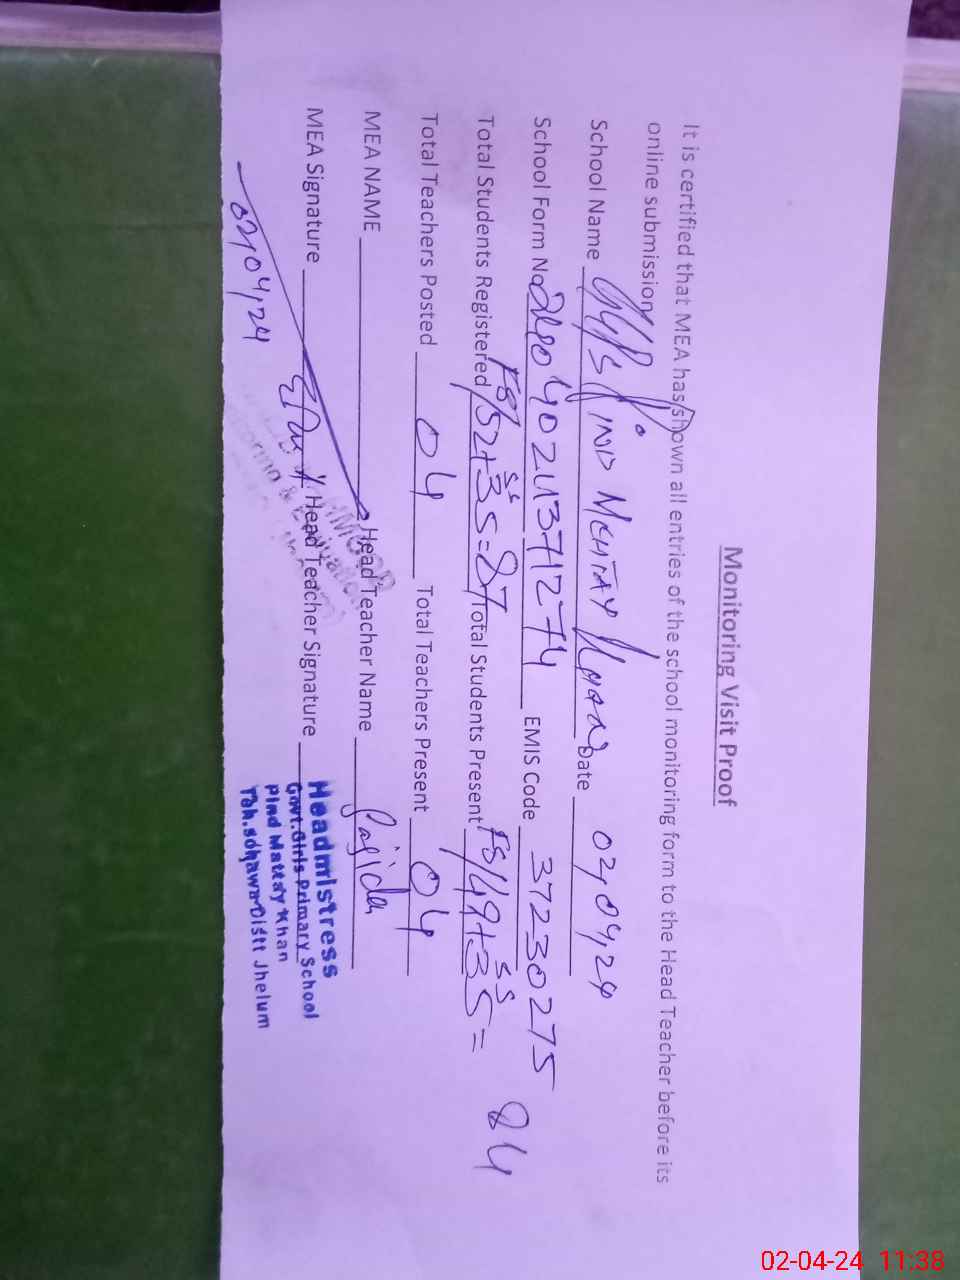 Monitoring Visit Proof
It is certified that MEA has shown all entries of the school monitoring form to the Head Teacher before its
online submission.
School Name GGPS PIND MEHTAY KHAN Date 02,04,24
School Form No. 402413712774 EMIS Code 37230275
Total Students Registered FS/52+SS 35=87 Total Students Present FS/49+SS 35=84
Total Teachers Posted 04 Total Teachers Present 04
MEA NAME Head Teacher Name Sajida
MEA Signature Head Teacher Signature
02,04,24
Headmistress
Govt.Girls Primary School
Pind Mattay Khan
Teh.sohawa Distt Jhelum
02-04-24 11:38